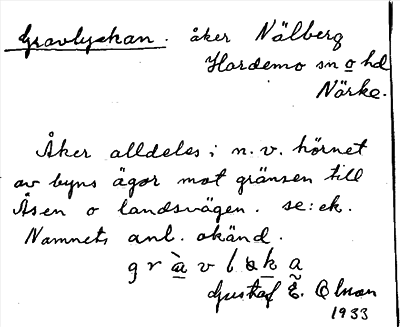 Gravlyckan. åker Nälberg
Hardemo sn o hd
Närke.
Åker alldeles i n.v. hörnet
av byns ägor mot gränsen till
Åsen o landsvägen. se: ek.
Namnets anl. okänd.
Gustaf E. Olsson
1933